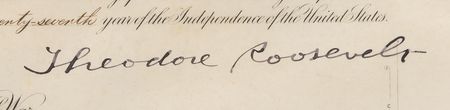 enty-seventh year of the Independence of the United States.
Theodore Roosevelt